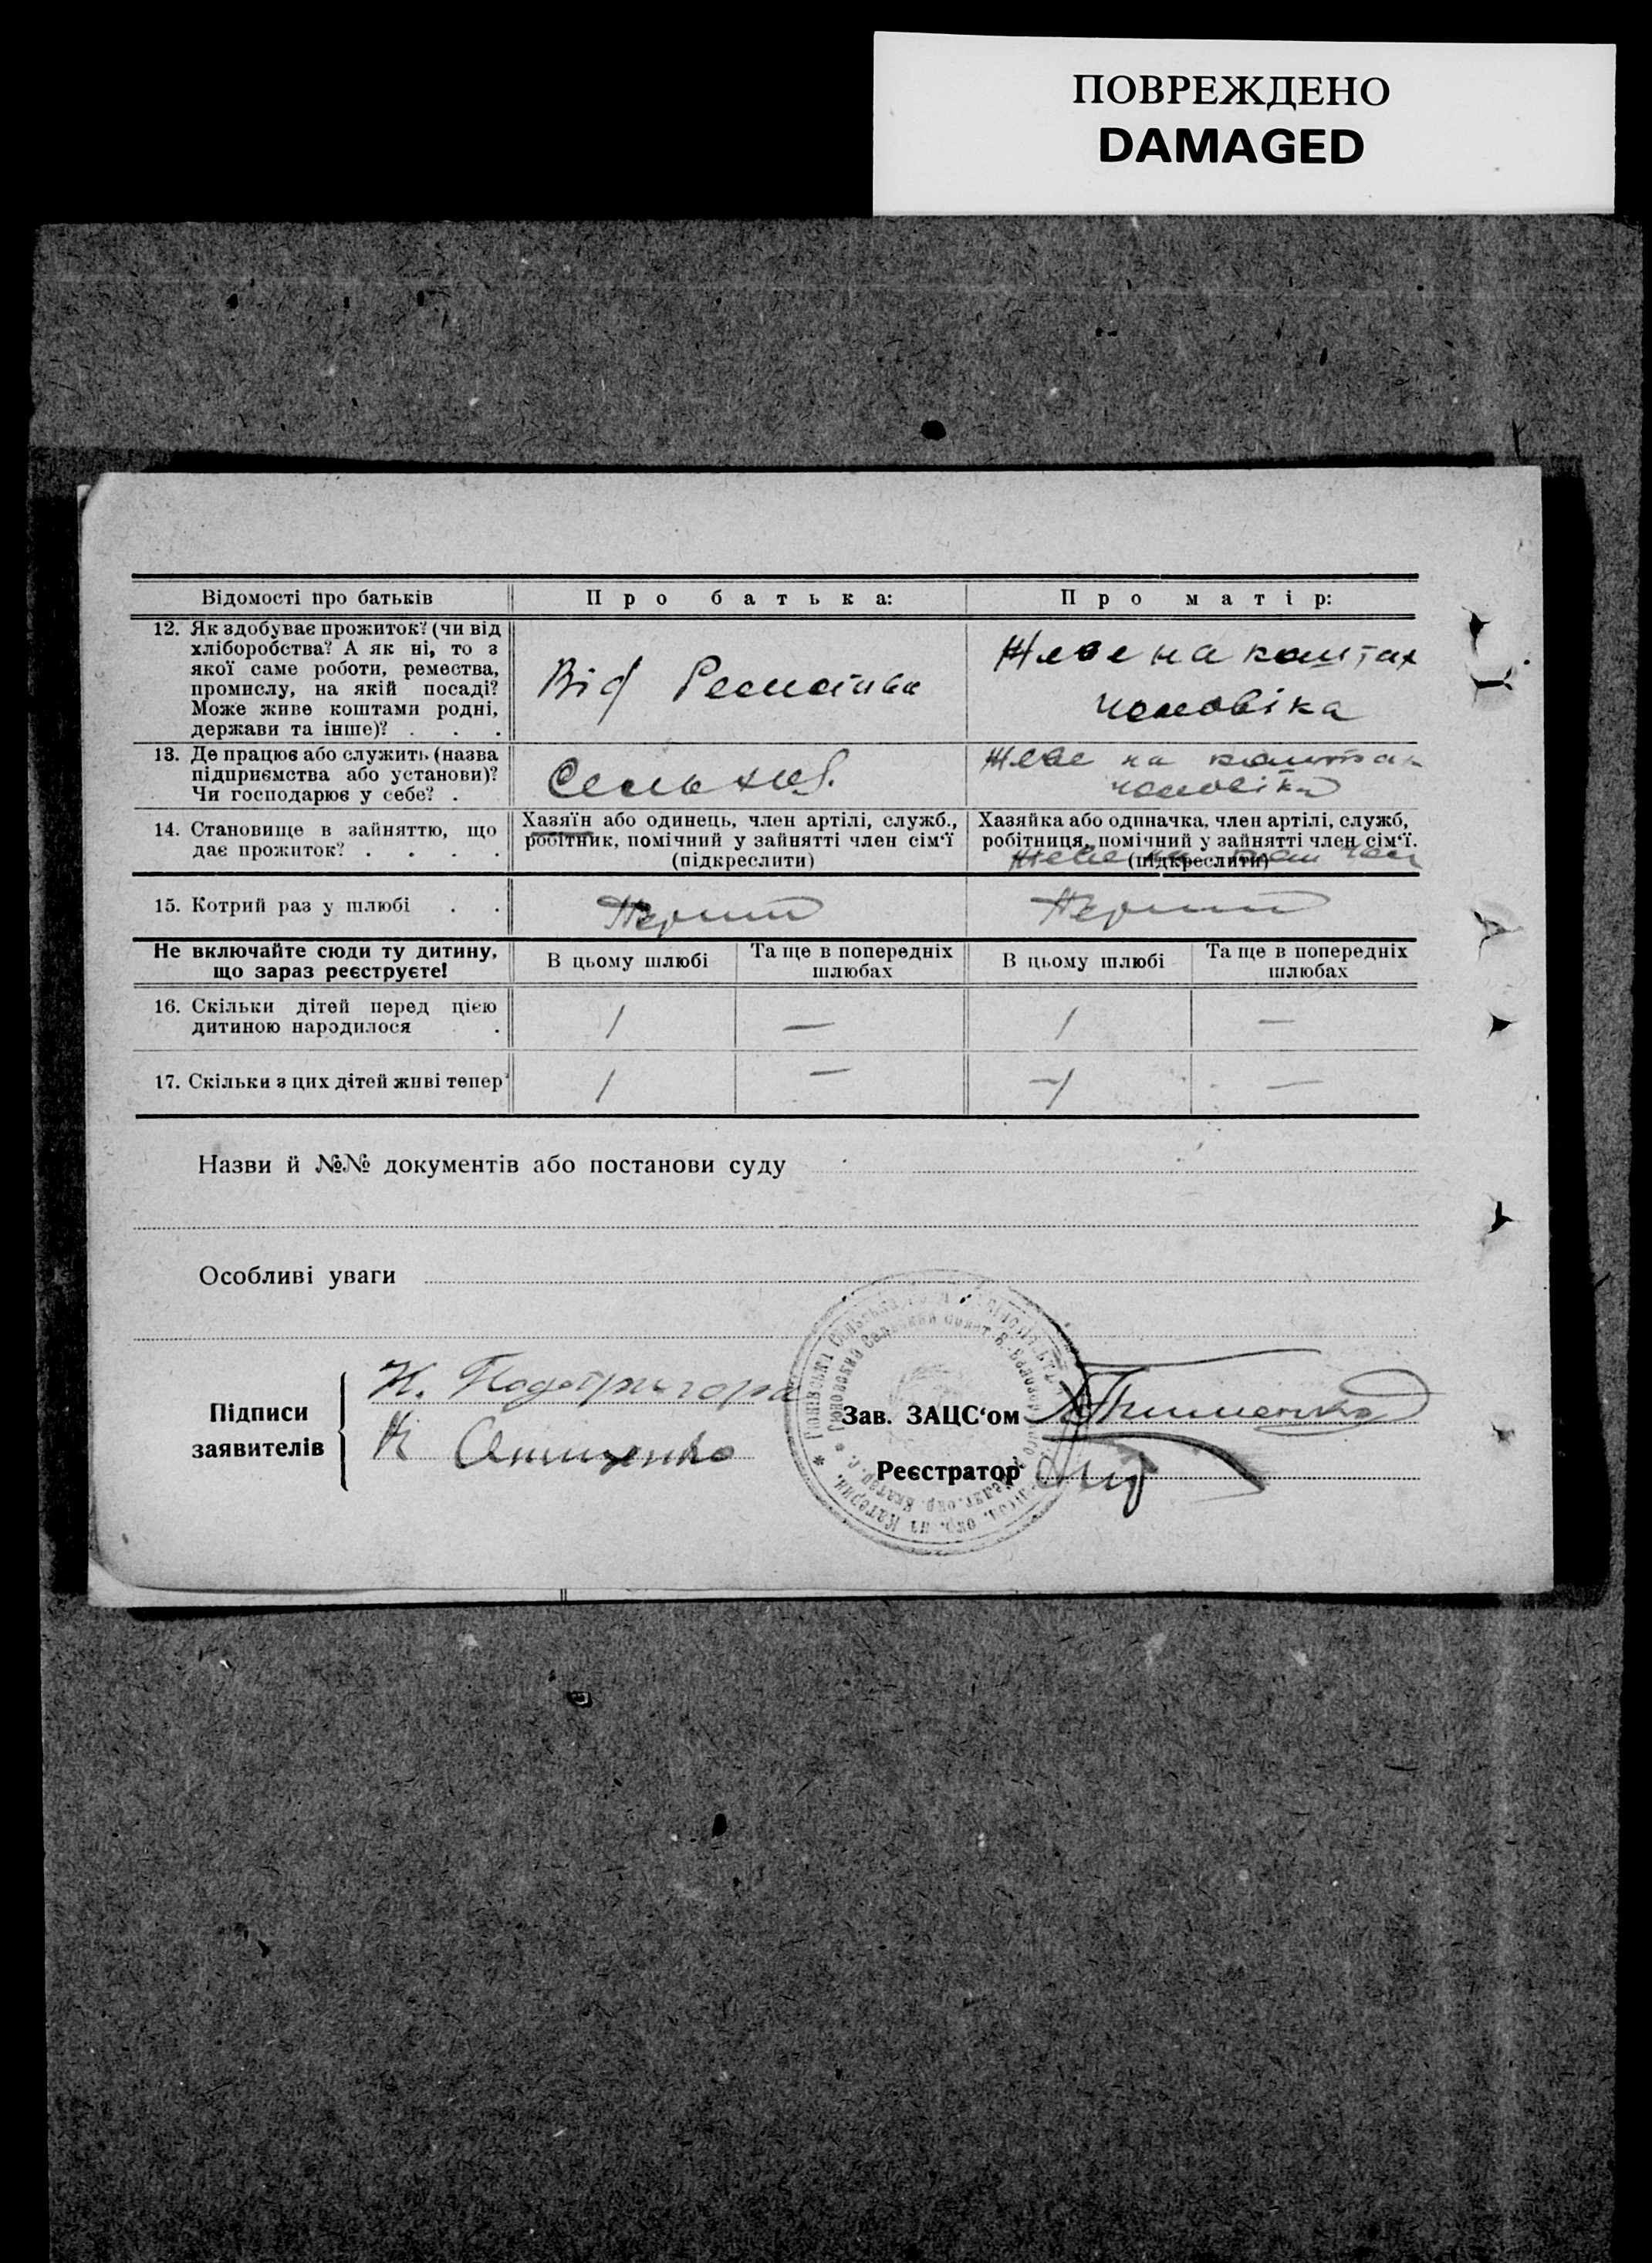 ПОВРЕЖДЕНО
DAMAGED
Відомості про батьків
Про батька:
Про матір:
12. Як здобуває прожиток? (чи від
хліборобства? А як ні, то з
якої саме роботи, ремества,
промислу, на якій посаді?
Може живе коштами родні,
держави та інше)? . . .
Від
на коштах
чоловіка
13. Де працює або служить (назва
підприємства або установи)?
Чи господарює у себе? .
на
чоловіка
14. Становище в зайняттю, що
дає прожиток? . . . .
Хазяїн або одинець, член артілі, служб.,
робітник, помічний у зайнятті член сім'ї
(підкреслити)
Хазяйка або одиначка, член артілі, служб,
робітниця, помічний у зайнятті член сім'ї.
(підкреслити)
15. Котрий раз у шлюбі . .
Не включайте сюди ту дитину,
що зараз реєструєте!
В цьому шлюбі
Та ще в попередніх
шлюбах
В цьому шлюбі
Та ще в попередніх
шлюбах
16. Скільки дітей перед цією
дитиною народилося .
1
—
1
—
17. Скільки з цих дітей живі тепер
1
—
1
—
Назви й №№ документів або постанови суду
Особливі уваги
Підписи
заявителів
Н. Подопригора
Н Онищенко
Зав. ЗАЦС'ом
Реєстратор